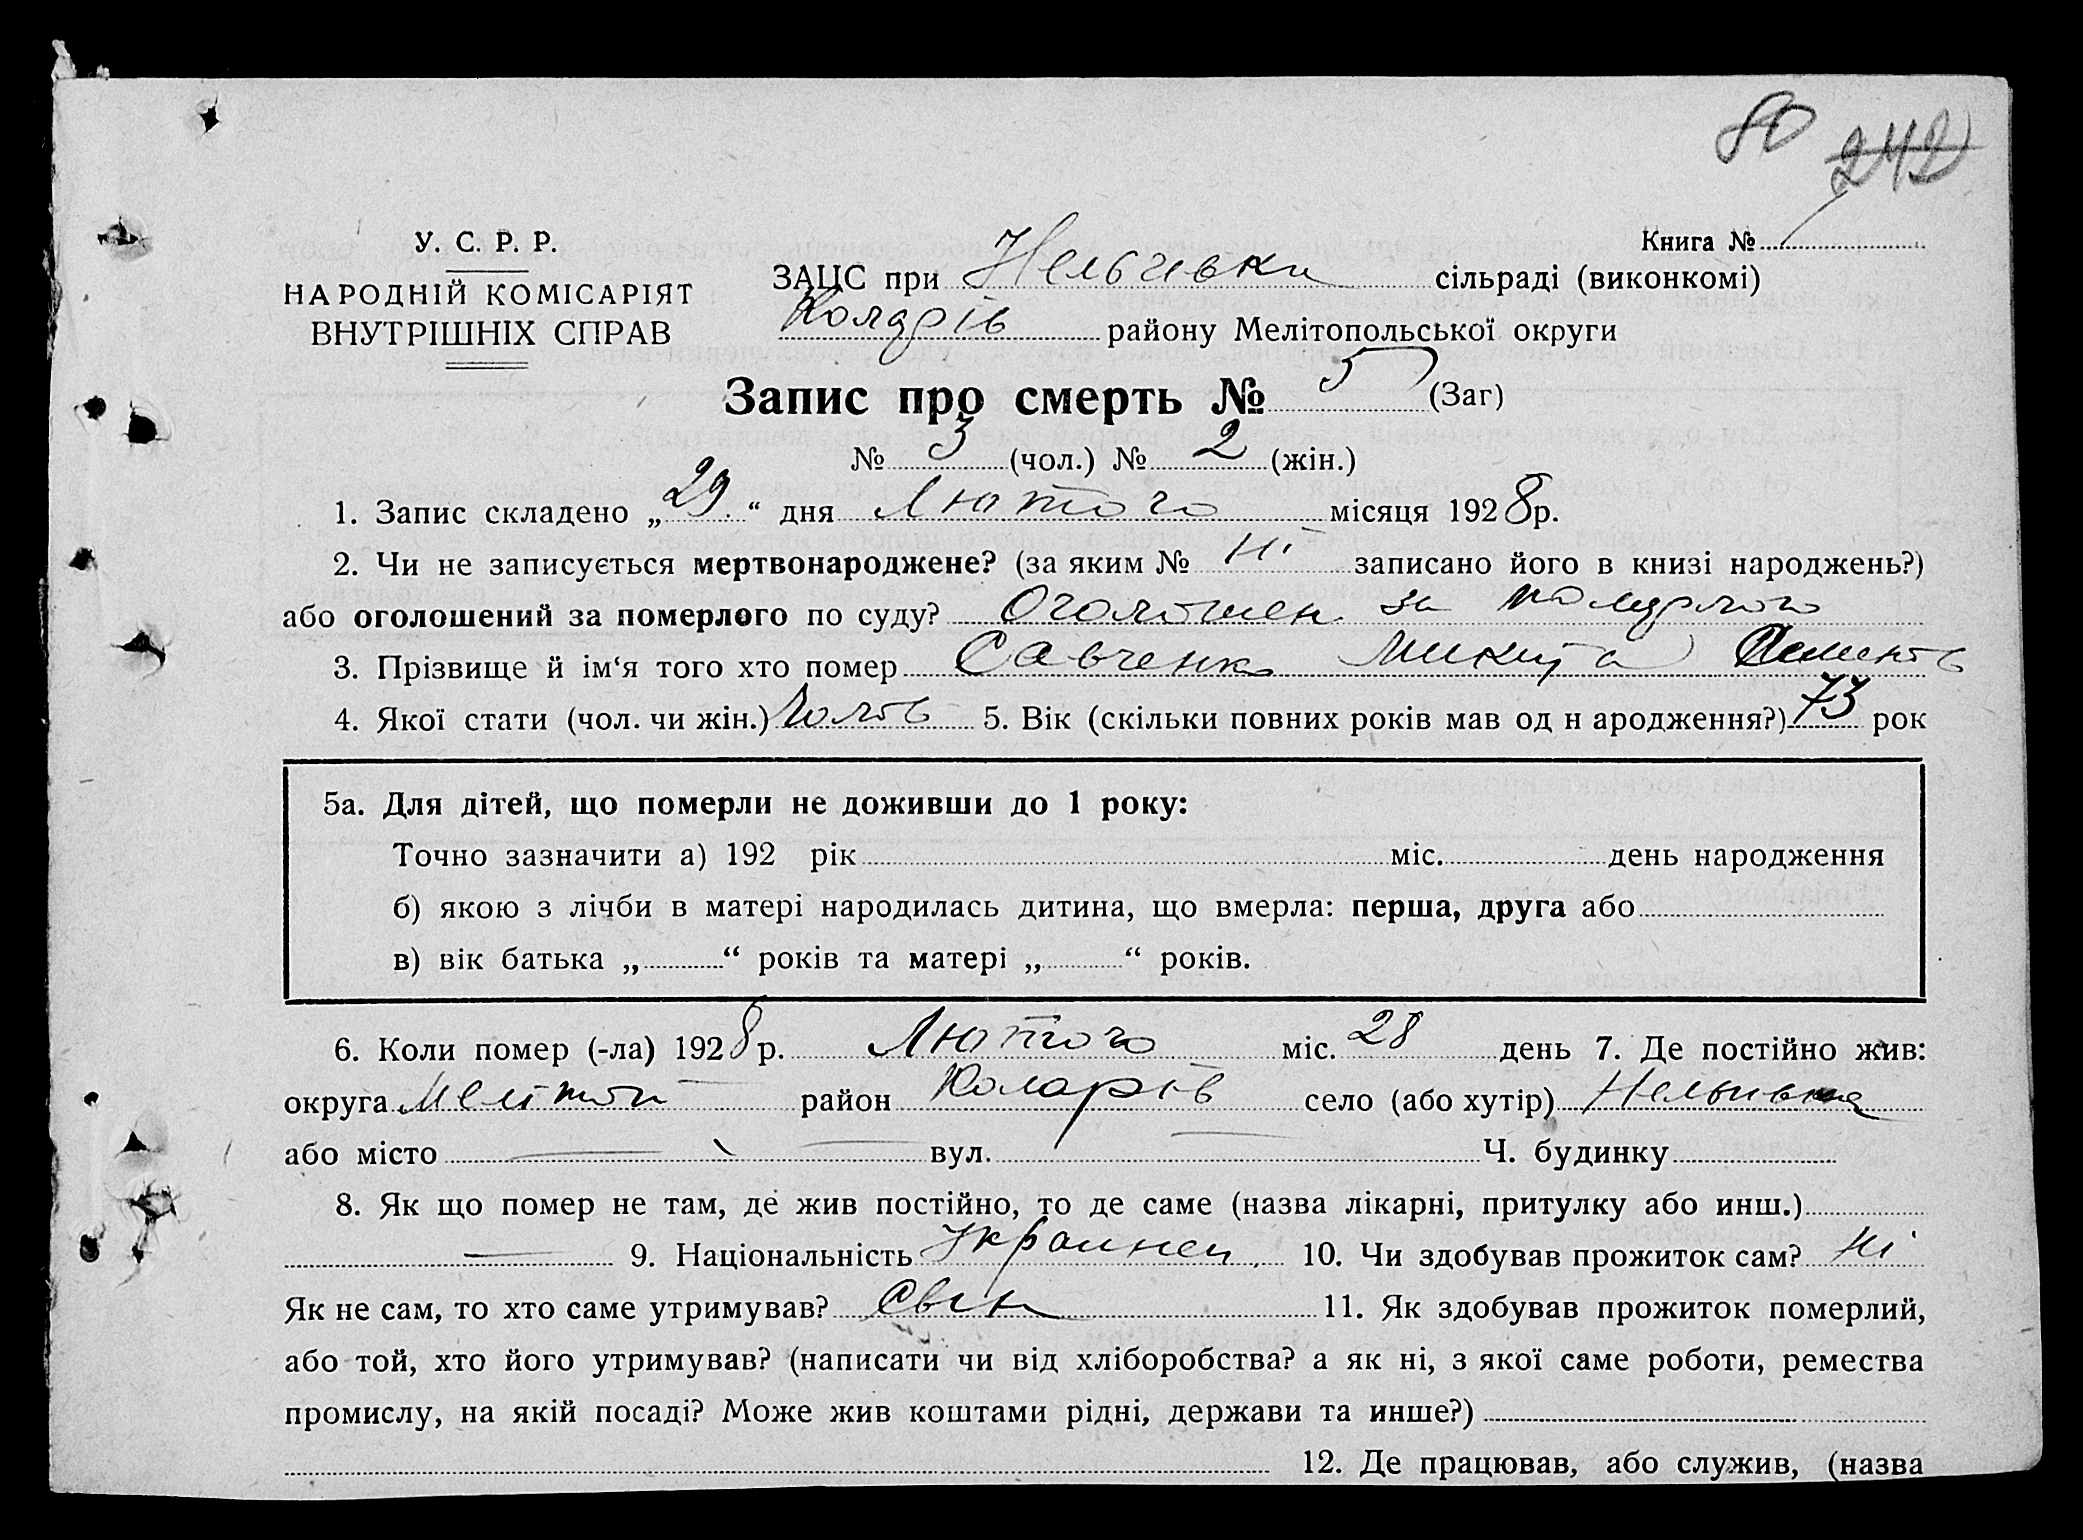 80 242
У. С. Р. Р.
НАРОДНІЙ КОМІСАРІЯТ
ВНУТРІШНІХ СПРАВ
Книга № 1
ЗАЦС при Нельгивки сільраді (виконкомі)
Коларів району Мелітопольської округи
Запис про смерть № 5 (Заг)
№ 3 (чол.) № 2 (жін.)
1. Запис складено „29“ дня Лютого місяця 1928 р.
2. Чи не записується мертвонароджене? (за яким № Ні записано його в книзі народжень?)
або оголошений за померлого по суду? Оголошен за померлого
3. Прізвище й ім‘я того хто помер Савченко Микита
4. Якої стати (чол. чи жін.) Чолов 5. Вік (скільки повних років мав од н ародження?) 73 рок
5а. Для дітей, що померли не доживши до 1 року:
Точно зазначити а) 192 рік міс. день народження
б) якою з лічби в матері народилась дитина, що вмерла: перша, друга або
в) вік батька „ “ років та матері „ “ років.
6. Коли помер (-ла) 1928 р. Лютого міс. 28 день 7. Де постійно жив:
округа Мелітоп район Коларів село (або хутір) Нельгивка
або місто вул. Ч. будинку
8. Як що помер не там, де жив постійно, то де саме (назва лікарні, притулку або инш.)
9. Національність Украинец 10. Чи здобував прожиток сам? Ні
Як не сам, то хто саме утримував? Син 11. Як здобував прожиток померлий,
або той, хто його утримував? (написати чи від хліборобства? а як ні, з якої саме роботи, ремества
промислу, на якій посаді? Може жив коштами рідні, держави та инше?)
12. Де працював, або служив, (назва